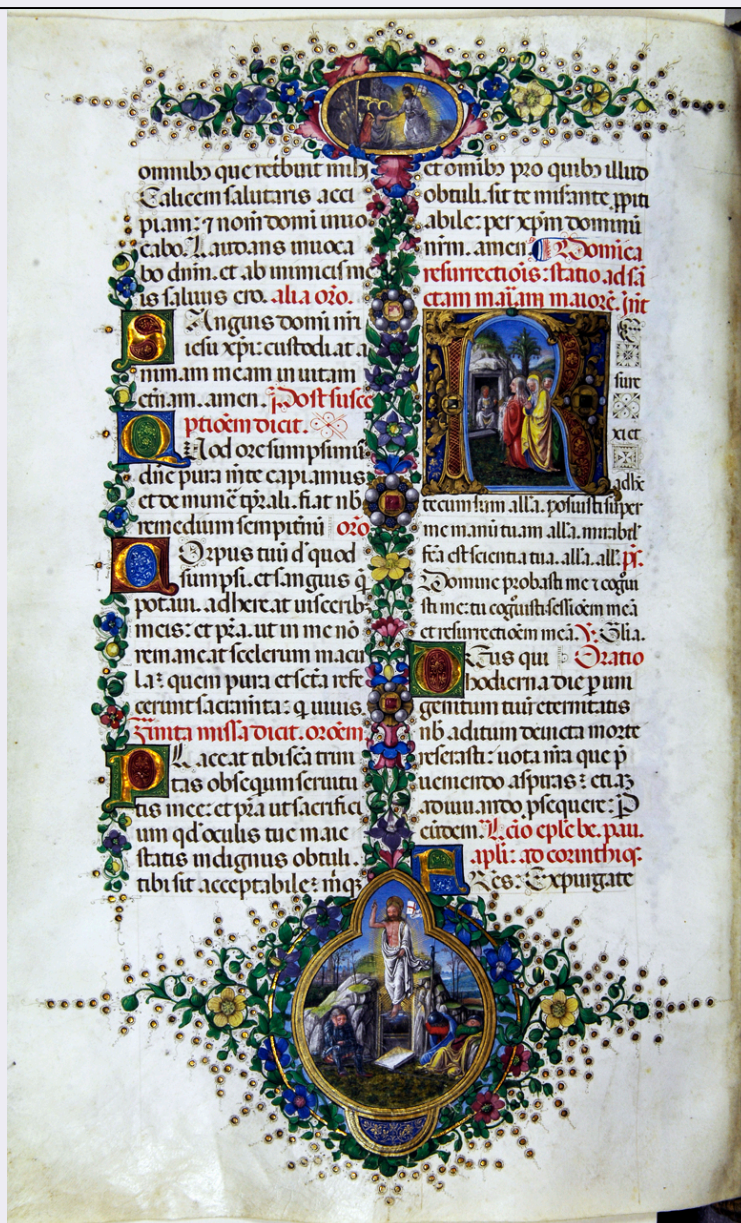 omnibꝫ que retribuit mihi
Calicem salutaris acci
piam: ⁊ nom̄ domi inuo
cabo. Laudans inuoca
bo dn̄m. et ab inimicis me
is saluus ero. alia oro.
SAnguis domini nr̄i
iesu xp̄i: custodiat a
nimam meam in uitam
etn̄am. amen. Post susce
ptiōem dicit.
QUod ore sumpsimus
dn̄e pura m̄te capiamus
et de mune tp̄rali. fiat nb̄
remedium sempitn̄u oro
COrpus tuū d' quod
sumpsi. et sanguis q̄
potaui. adhereat uiscerib
meis: et p̄ra. ut in me nō
remaneat scelerum macu
la: quem pura et sc̄ta refe
cerunt sacram̄ta: q uiuis.
Finita missa dicit. orōem
PLaceat tibi sc̄a trini
tas obsequium seruitu
tis mee: et p̄ra ut sacrifici
um qd' oculis tue maie
statis indignus obtuli.
tibi sit acceptabile: m̄qꝫ
et omībꝫ pro quibꝫ illud
obtuli. sit te miserante. ꝓpiti
abile: per xp̄m dominū
nr̄m. amen Domīca
resurrectiōis: statio ad sā
ctam mariam maiorē. Īnt
RE
surre
xi et
adhc
tecum sum all'a. posuisti super
me manū tuam all'a. mirabil'
fc̄a est scientia tua. all'a. all'. p̄s.
Domine probasti me ⁊ cogui
sti me: tu coguisti sessiōem meā
et resurrectiōem meā. V. Glia.
DEus qui Oratio
hodierna die p um
genitum tuū eternitatis
nb̄ aditum deuicta morte
reserasti: uota nr̄a que p̄
ueniendo aspiras: etiaꝫ
adiuuando ꝓsequere: P
eūdem. Lc̄io eplē be. pau.
apli: ad corinthios.
FRes: Expurgate